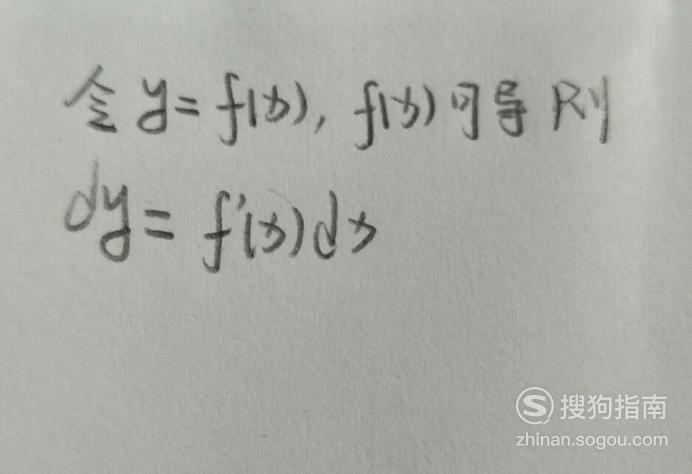 令y=f(x),f(x)可导则
dy=f'(x)dx
搜狗指南
zhinan.sogou.com